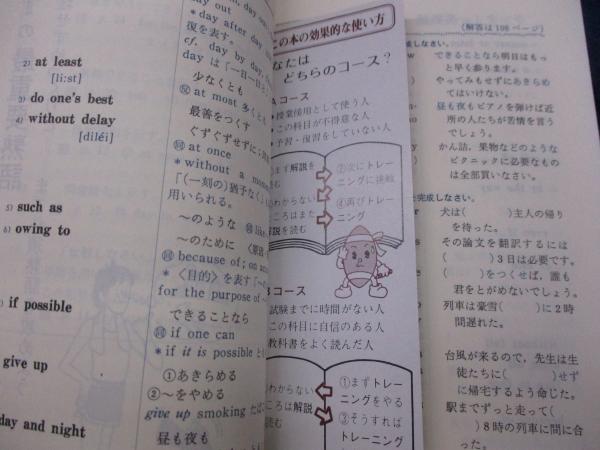 day after day
復を表す。
cf. day by day,
day は「一日一日と
2) at least
[li:st]
少なくとも
at most 多くとも
3) do one's best
最善をつくす
4) without delay
[diléi]
ぐずぐずせずに
at once
* without a
「(一刻の)猶予なく
用いられる。
5) such as
〜のような
6) owing to
〜のために
because of ; on
*〈目的〉を表す「〜
for the purpose of
if possible
できることなら
if one can
* if it is possible と
give up
①あきらめる
②〜をやめる
give up smoking たば
day and night
昼も夜も
この本の効果的な使い方
なたは
どちらのコース?
コース
授業併用として使う人
この科目が不得意な人
予習・復習をしていない人
まず解説を
読む
②次にトレー
ニングに挑戦
わからない
ころはまた
解説を読む
④再びトレー
ニング
コース
試験までに時間がない人
この科目に自信のある人
教科書をよく読んだ人
わからない
ころは解説
読む
①まずトレー
ニングをやる
③そうすれば
トレーニング
(解答は108ページ)
しなさい。
できることなら明日はもっ
と早く参ります。
やってみもせずにあきらめ
てはいけない。
昼も夜もピアノを弾けば近
所の人たちが苦情を言う
でしょう。
かん詰、果物などのような
ピクニックに必要なもの
は全部買いなさい。
完成しなさい。
犬は( )主人の帰り
を待った。
その論文を翻訳するには
( )3日は必要です。
( )をつくせば、誰も
君をとがめないでしょう。
列車は豪雪( )に2時
間遅れた。
台風が来るので、先生は生
徒たちに( )せず
に帰宅するよう命じた。
駅までずっと走って(
)8時の列車に間に合
った。